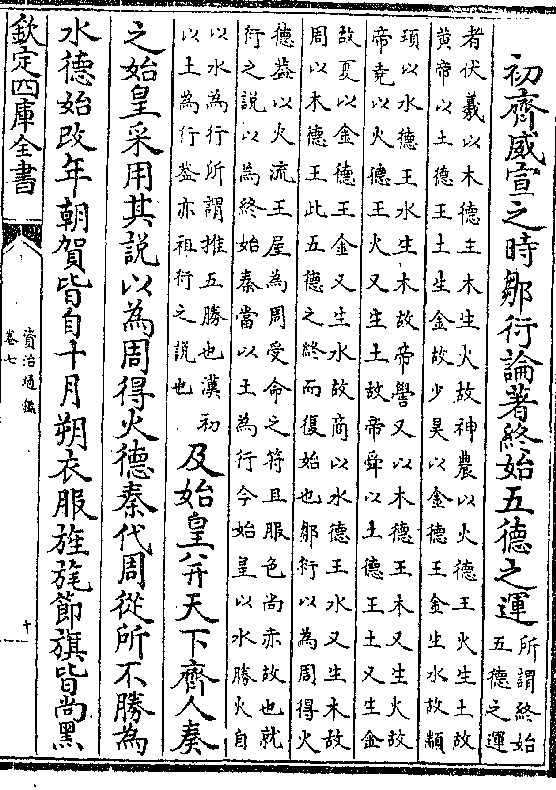 初齊威宣之時鄒衍論著終始五德之運
所謂終始
五德之運
者伏羲以木德王木生火故神農以火德王火生土故
黄帝以土德王土生金故少昊以金德王金生水故顓
頊以水德王水生木故帝嚳又以木德王木又生火故
帝堯以火德王火又生土故帝舜以土德王土又生金
故夏以金德王金又生水故商以水德王水又生木故
周以木德王此五德之終而復始也鄒衍以為周得火
德葢以火流王屋為周受命之符且服色尚赤故也就
衍之説以為終始秦當以土為行今始皇以水勝火自
以水為行所謂推五勝也漢初
以土為行葢亦祖衍之説也
及始皇并天下齊人奏
之始皇采用其説以為周得火德秦代周從所不勝為
水德始改年朝賀皆自十月朔衣服旌旄節旗皆尚黑
欽定四庫全書
資治通鑑
卷七
十